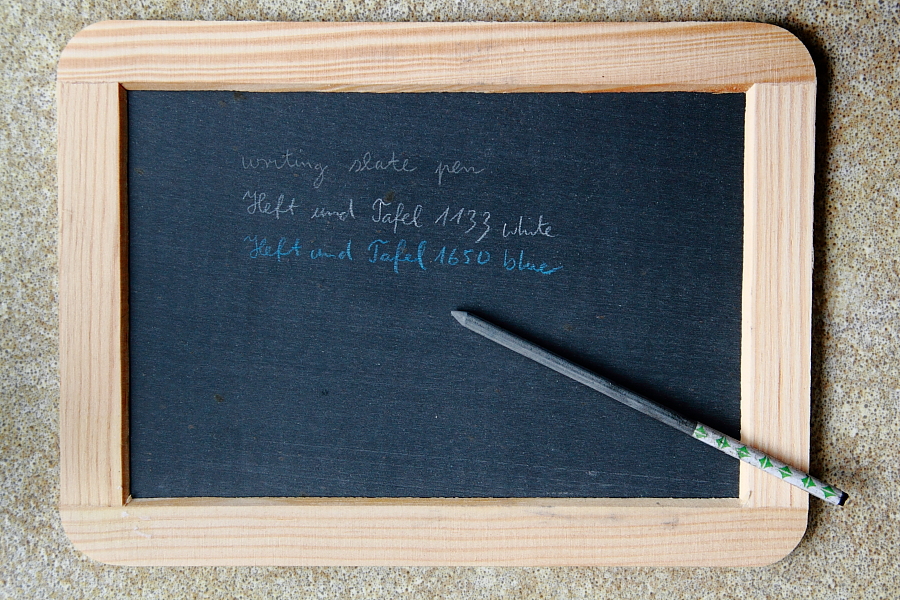 writing slate pen
Heft und Tafel 1133 white
Heft und Tafel 1650 blue